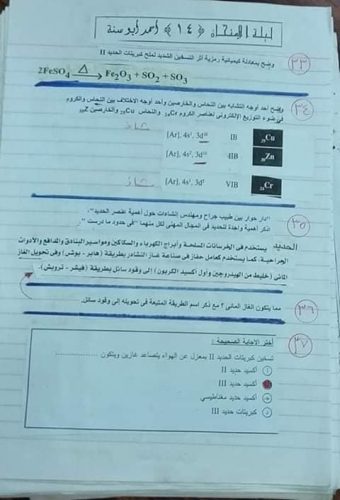 ليلة الامتحان ﴿١٤﴾ أحمد أبو سنة
٣٣
وضح بمعادلة كيميائية رمزية أثر التسخين الشديد لملح كبريتات الحديد II
2FeSO4 Δ→ Fe2O3 + SO2 + SO3
٣٤
وضح أحد أوجه التشابه بين النحاس والخارصين وأحد أوجه الاختلاف بين النحاس والكروم
في ضوء التوزيع الإلكتروني لعناصر الكروم 24Cr والنحاس 29Cu والخارصين 30Zn
شاذ [Ar], 4s1, 3d10 IB 29Cu
[Ar], 4s2, 3d10 IIB 30Zn
شاذ [Ar], 4s1, 3d5 VIB 24Cr
٣٥
"دار حوار بين طبيب جراح ومهندس إنشاءات حول أهمية عنصر الحديد".
اذكر أهمية واحدة للحديد في المجال المهني لكل منهما "في حدود ما درست".
الحديد يستخدم في الخرسانات المسلحة وأبراج الكهرباء والسكاكين ومواسير البنادق والمدافع والأدوات
الجراحية. كما يستخدم كعامل حفاز في صناعة غاز النشادر بطريقة (هابر - بوش) وفي تحويل الغاز
المائي (خليط من الهيدروجين وأول أكسيد الكربون) إلى وقود سائل بطريقة (فيشر - تروبش).
٣٦
مما يتكون الغاز المائي ؟ مع ذكر اسم الطريقة المتبعة في تحويله إلى وقود سائل.
٣٧
أختر الإجابة الصحيحة :
تسخين كبريتات الحديد II بمعزل عن الهواء يتصاعد غازين ويتكون
أ أكسيد حديد II
أكسيد حديد III
أكسيد حديد مغناطيسي
د كبريتات حديد III